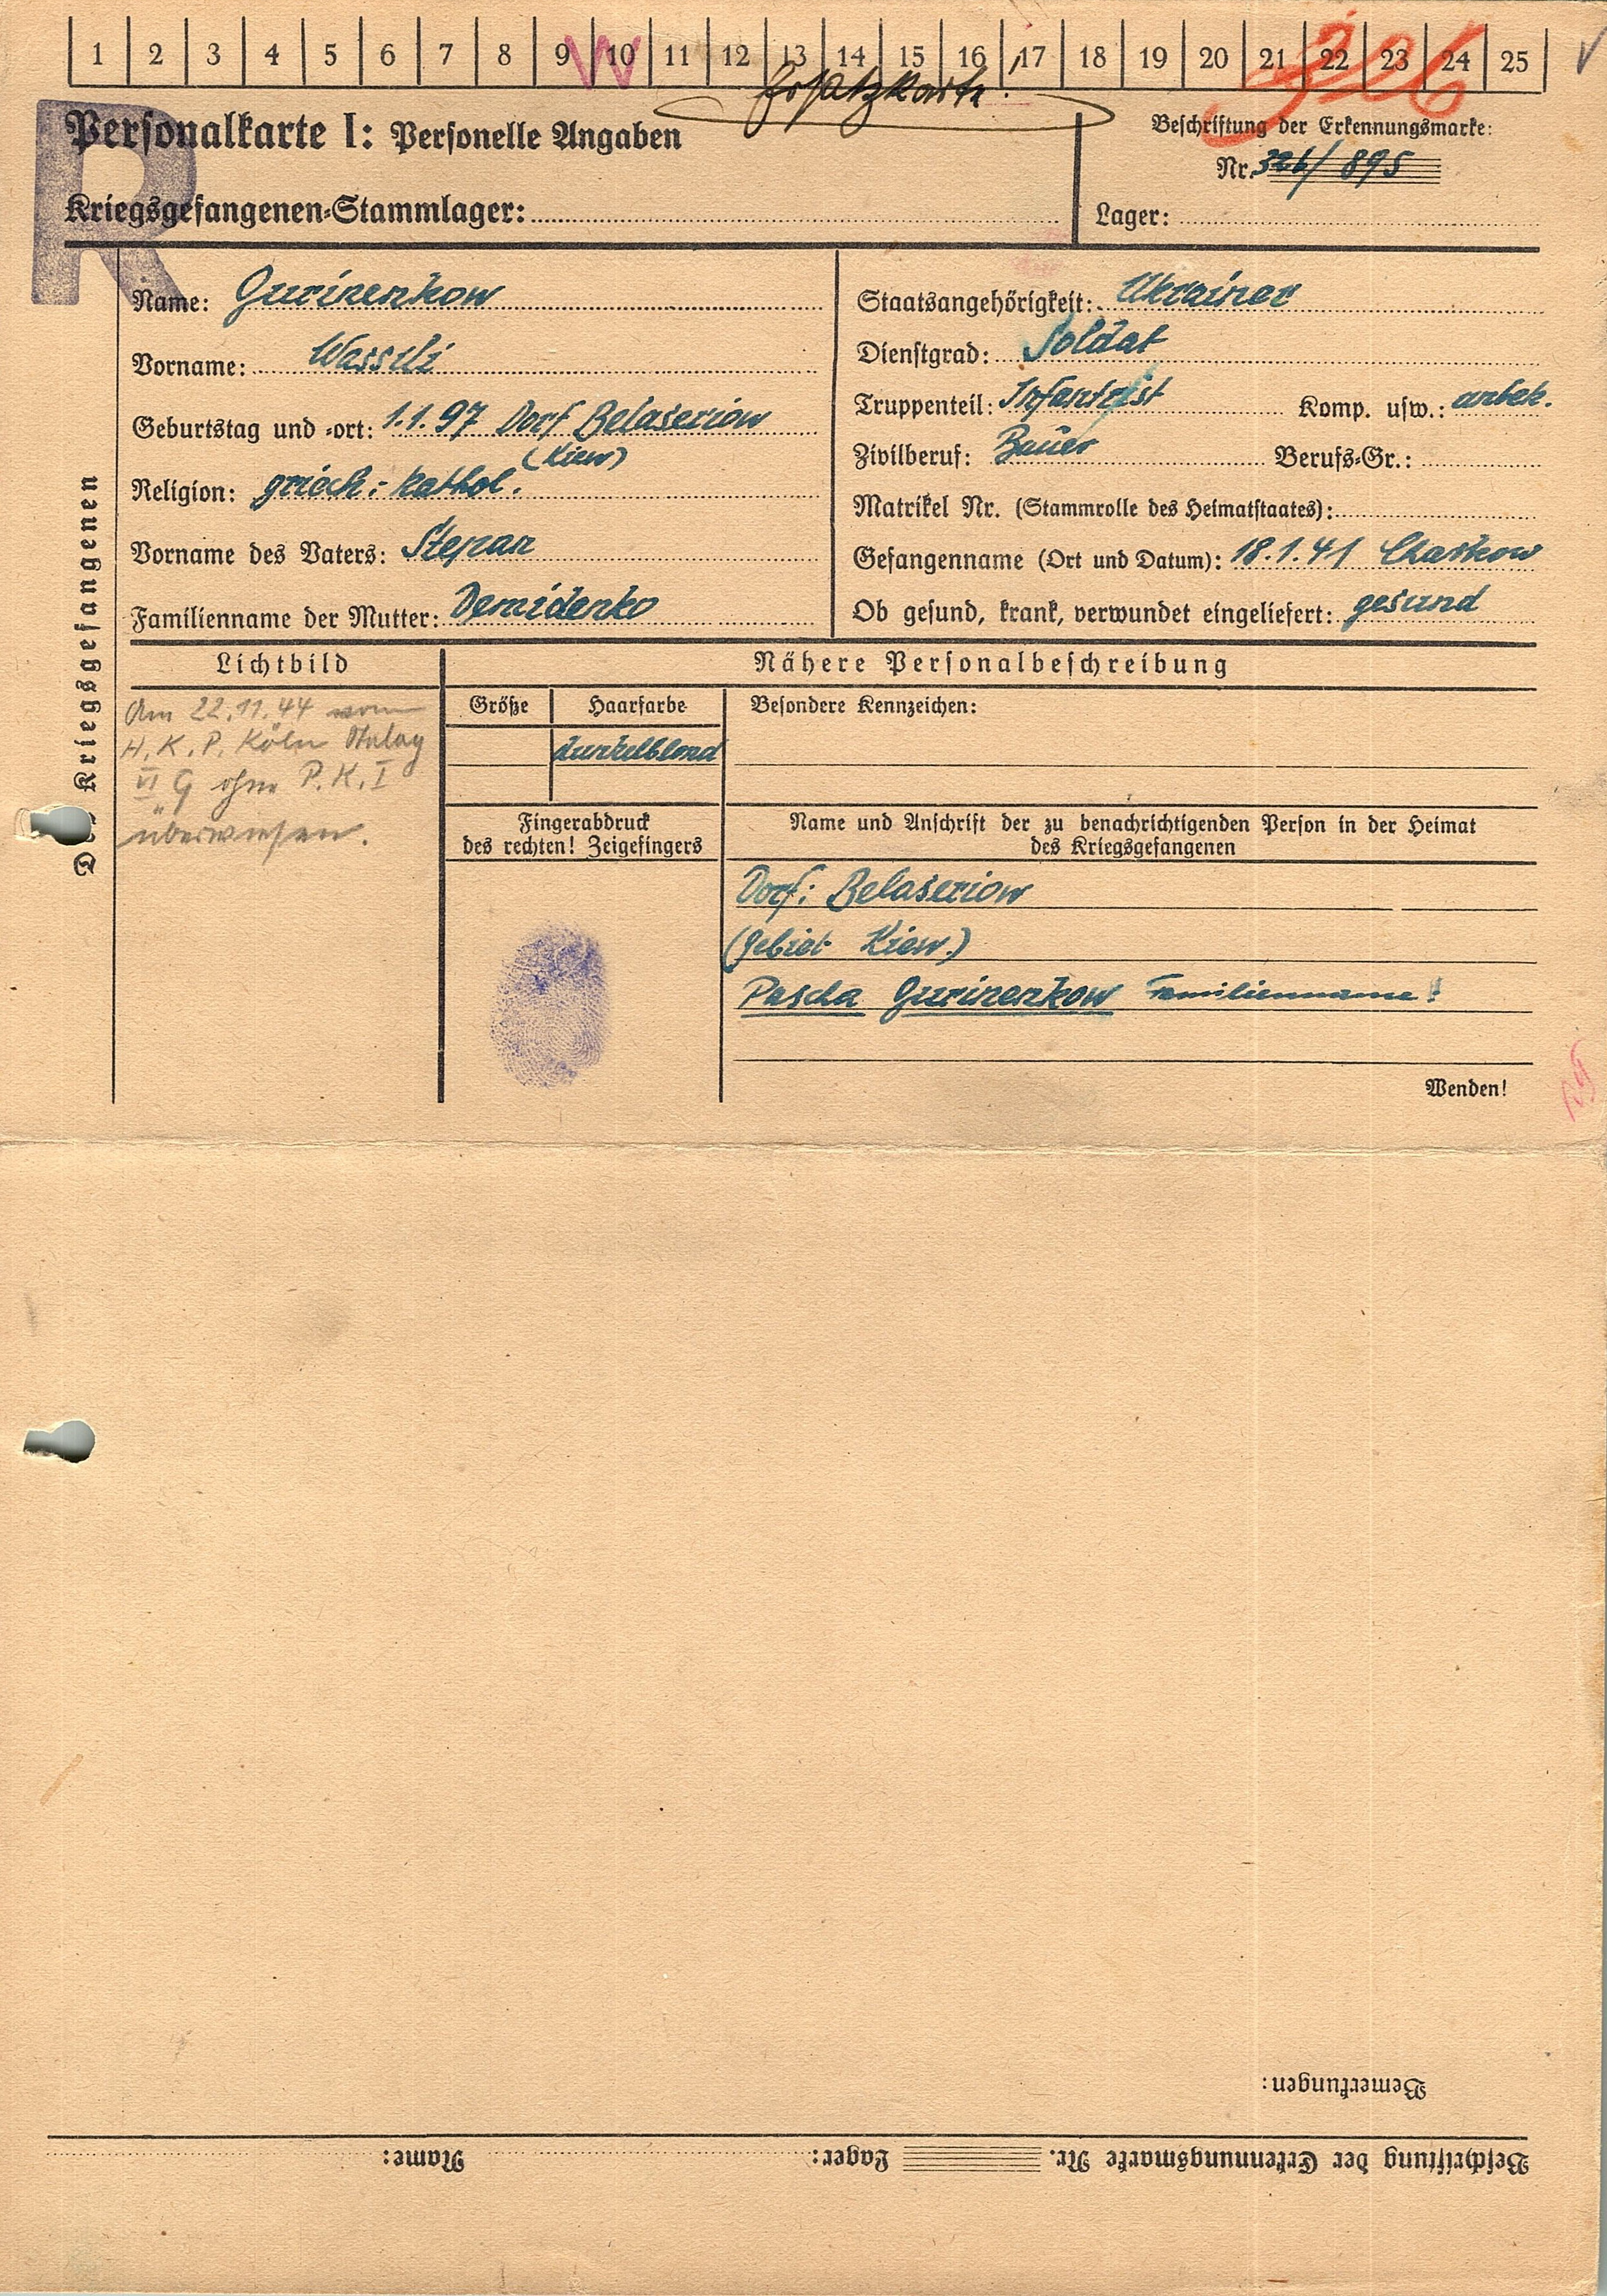 1 2 3 4 5 6 7 8 9 10 11 12 13 14 15 16 17 18 19 20 21 22 23 24 25
W
326
Ersatzkarte!
R
Personalkarte I: Personelle Angaben
Beschriftung der Erkennungsmarke:
Nr. 326/ 895
Kriegsgefangenen-Stammlager:
Lager:
Des Kriegsgefangenen
Name: Gurinenkow
Vorname: Wassili
Geburtstag und -ort: 1.1.97 Dorf Belaseriow
(Kiew)
Religion: griech.-kathol.
Vorname des Vaters: Stepan
Familienname der Mutter: Demidenko
Staatsangehörigkeit: Ukrainer
Dienstgrad: Soldat
Truppenteil: Infantrist Komp. usw.: arbek.
Zivilberuf: Bauer Berufs-Gr.:
Matrikel Nr. (Stammrolle des Heimatstaates):
Gefangennahme (Ort und Datum): 18.1.41 Charkow
Ob gesund, krank, verwundet eingeliefert: gesund
Lichtbild
Am 22.11.44 vom
H.K.P. Köln Stalag
VI G ohne P.K.I
überwiesen.
Nähere Personalbeschreibung
Größe Haarfarbe Besondere Kennzeichen:
dunkelblond
Fingerabdruck
des rechten! Zeigefingers
Name und Anschrift der zu benachrichtigenden Person in der Heimat
des Kriegsgefangenen
Dorf: Belaseriow
(Gebiet Kiew.)
Pascha Gurinenkow Familienname!
Wenden!
Bemerkungen:
Beschriftung der Erkennungsmarke Nr. Lager: Name: